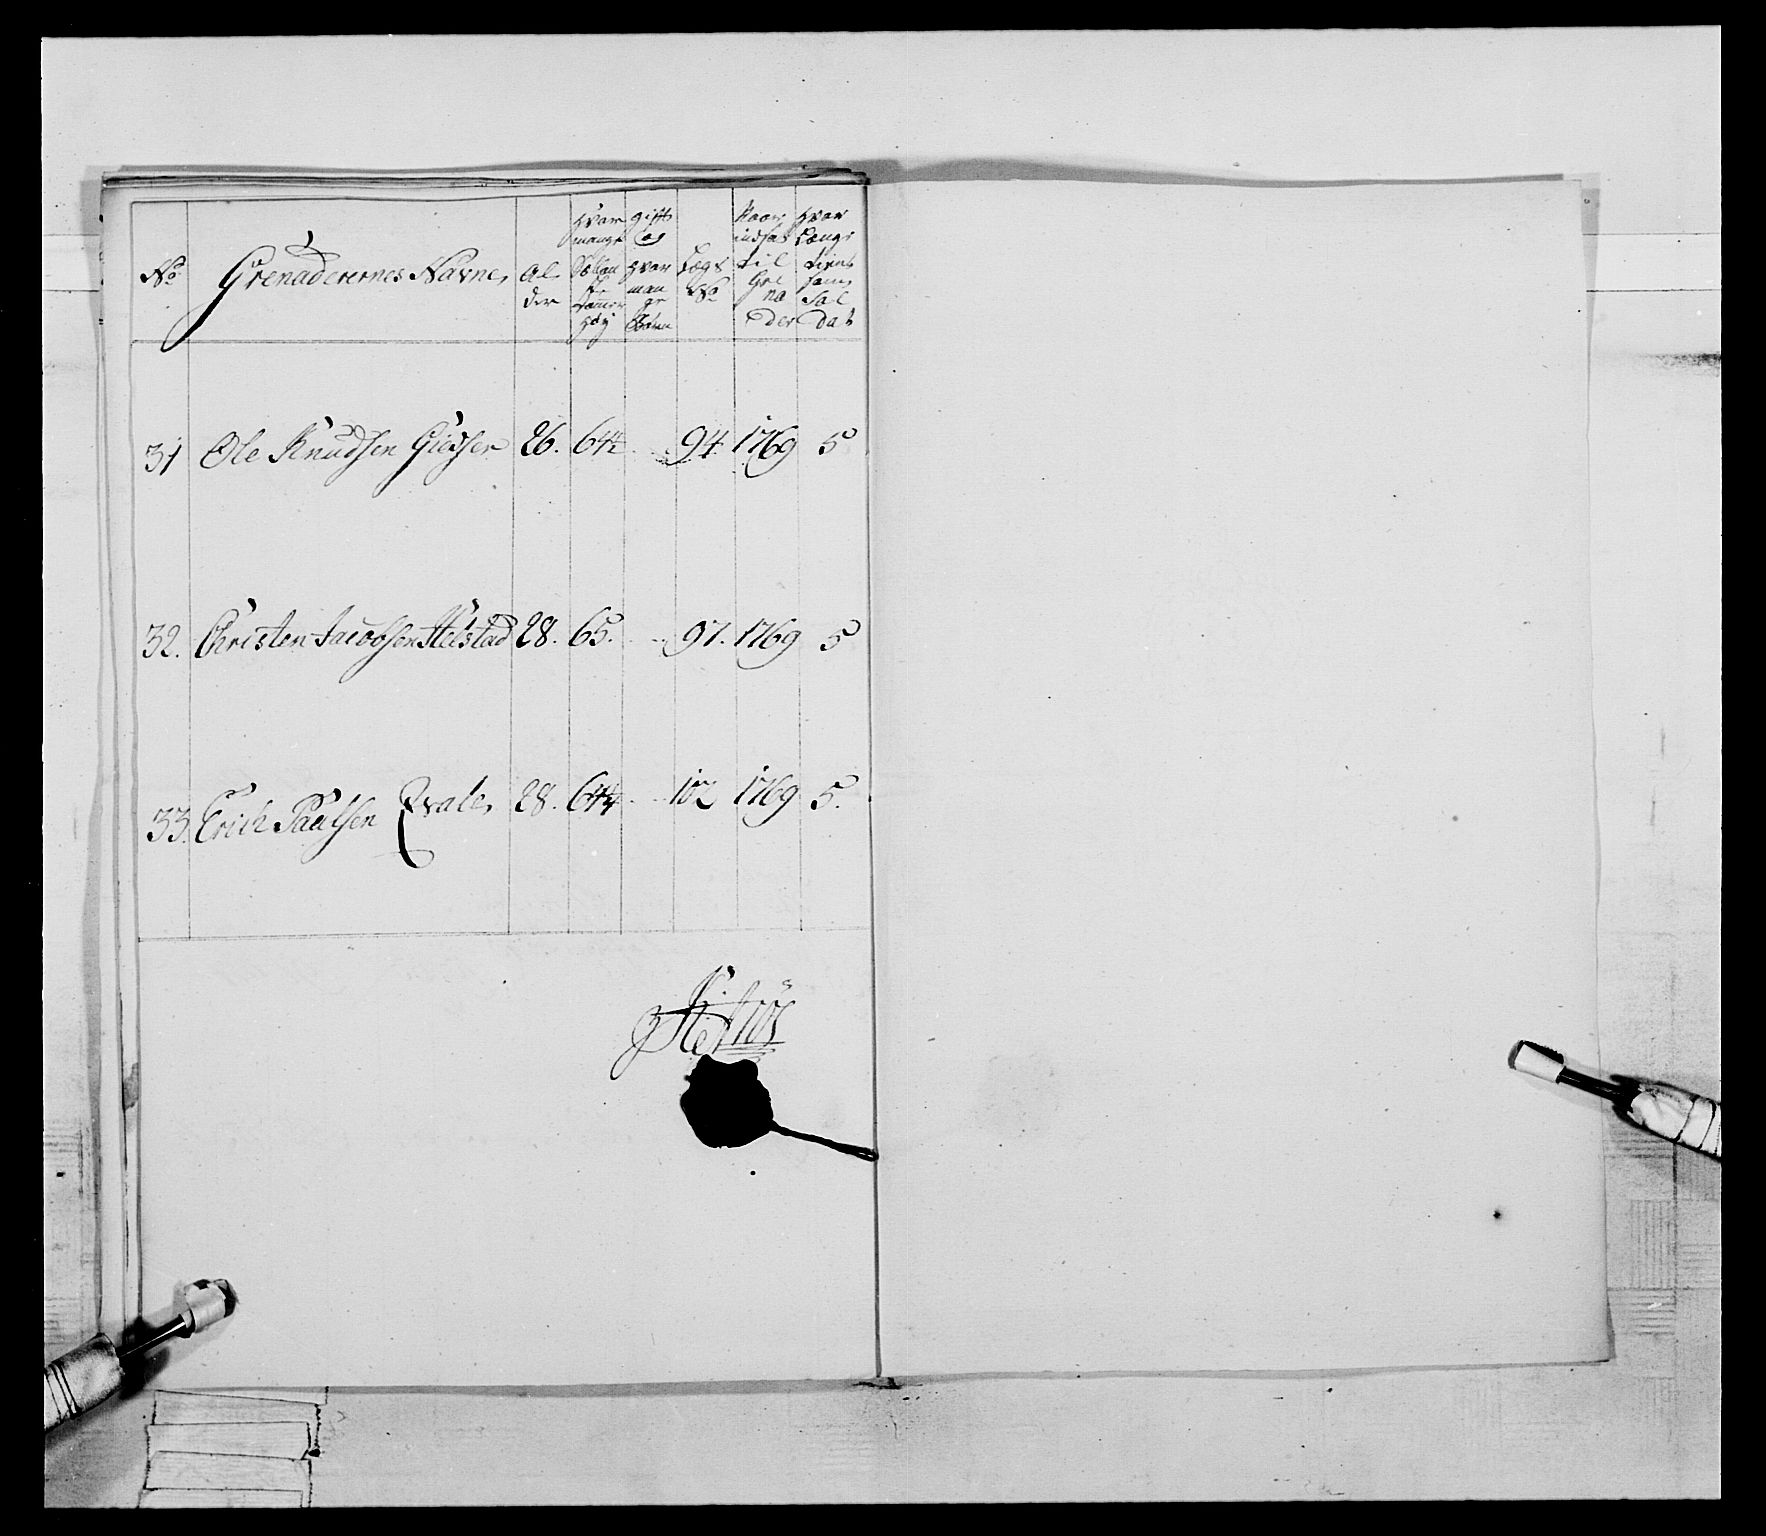 No Grenaderernes Navne, Al der hvor mange Sollan Tommer Høy gift og hvor man ge Lægs No Naar indsat til Gre na der hvor Længe tient som Sol dat
31 Ole Knudsen Giesher 26. 64½ 94 1769 5
32. Christen Jacobsen Helstad 28. 65. 97. 1769 5
33. Erich Paulsen Qvale, 28. 64¼ 102 1769 5.